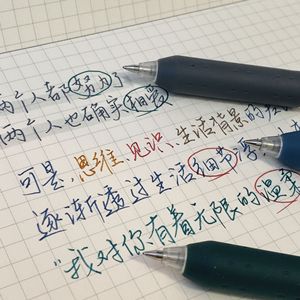 两个人都努力了
两个人也确实相爱
可是,思维、见识、生活背景的
逐渐透过生活细节浮
"我对你有着无限的温柔